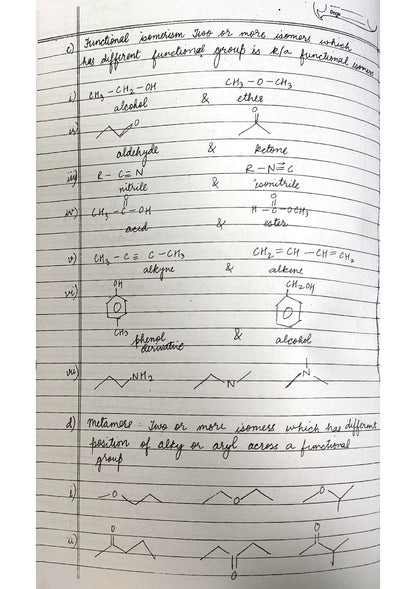 Page
c) Functional isomerism Two or more isomers which
has different functional group is k/a functional isomers
i) CH₃ – CH₂ – OH & CH₃ – O – CH₃
alcohol ether
ii) O O
aldehyde & ketone
iii) R – C ≡ N & R – N ⇉ C
nitrile isonitrile
iv) CH₃ – C – OH & H – C – OCH₃
O O
acid ester
v) CH₃ – C ≡ C – CH₃ & CH₂ = CH – CH = CH₂
alkyne alkene
vi) OH CH₂OH
CH₃
phenol & alcohol
derivative
vii) NH₂ N N
d) metamers : Two or more isomers which has different
position of alky or aryl across a functional
group
i) O O O
ii) O O O